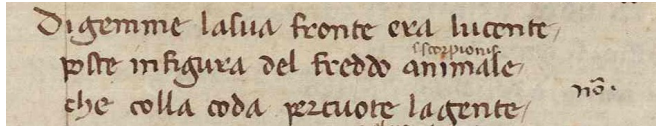 Digemme lasua fronte era lucente
s. scorpionis
poste infigura del freddo animale
no.
che colla coda percuote lagente